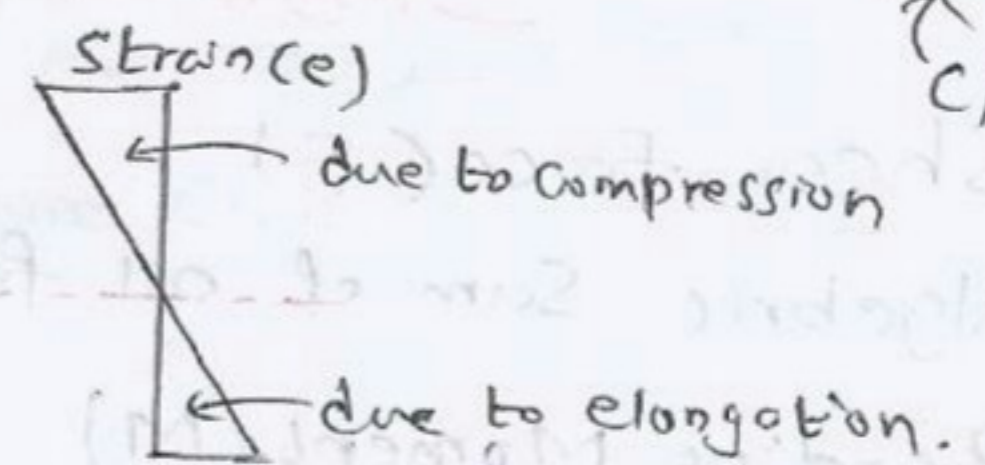 Strain(e)
due to Compression
due to elongation.